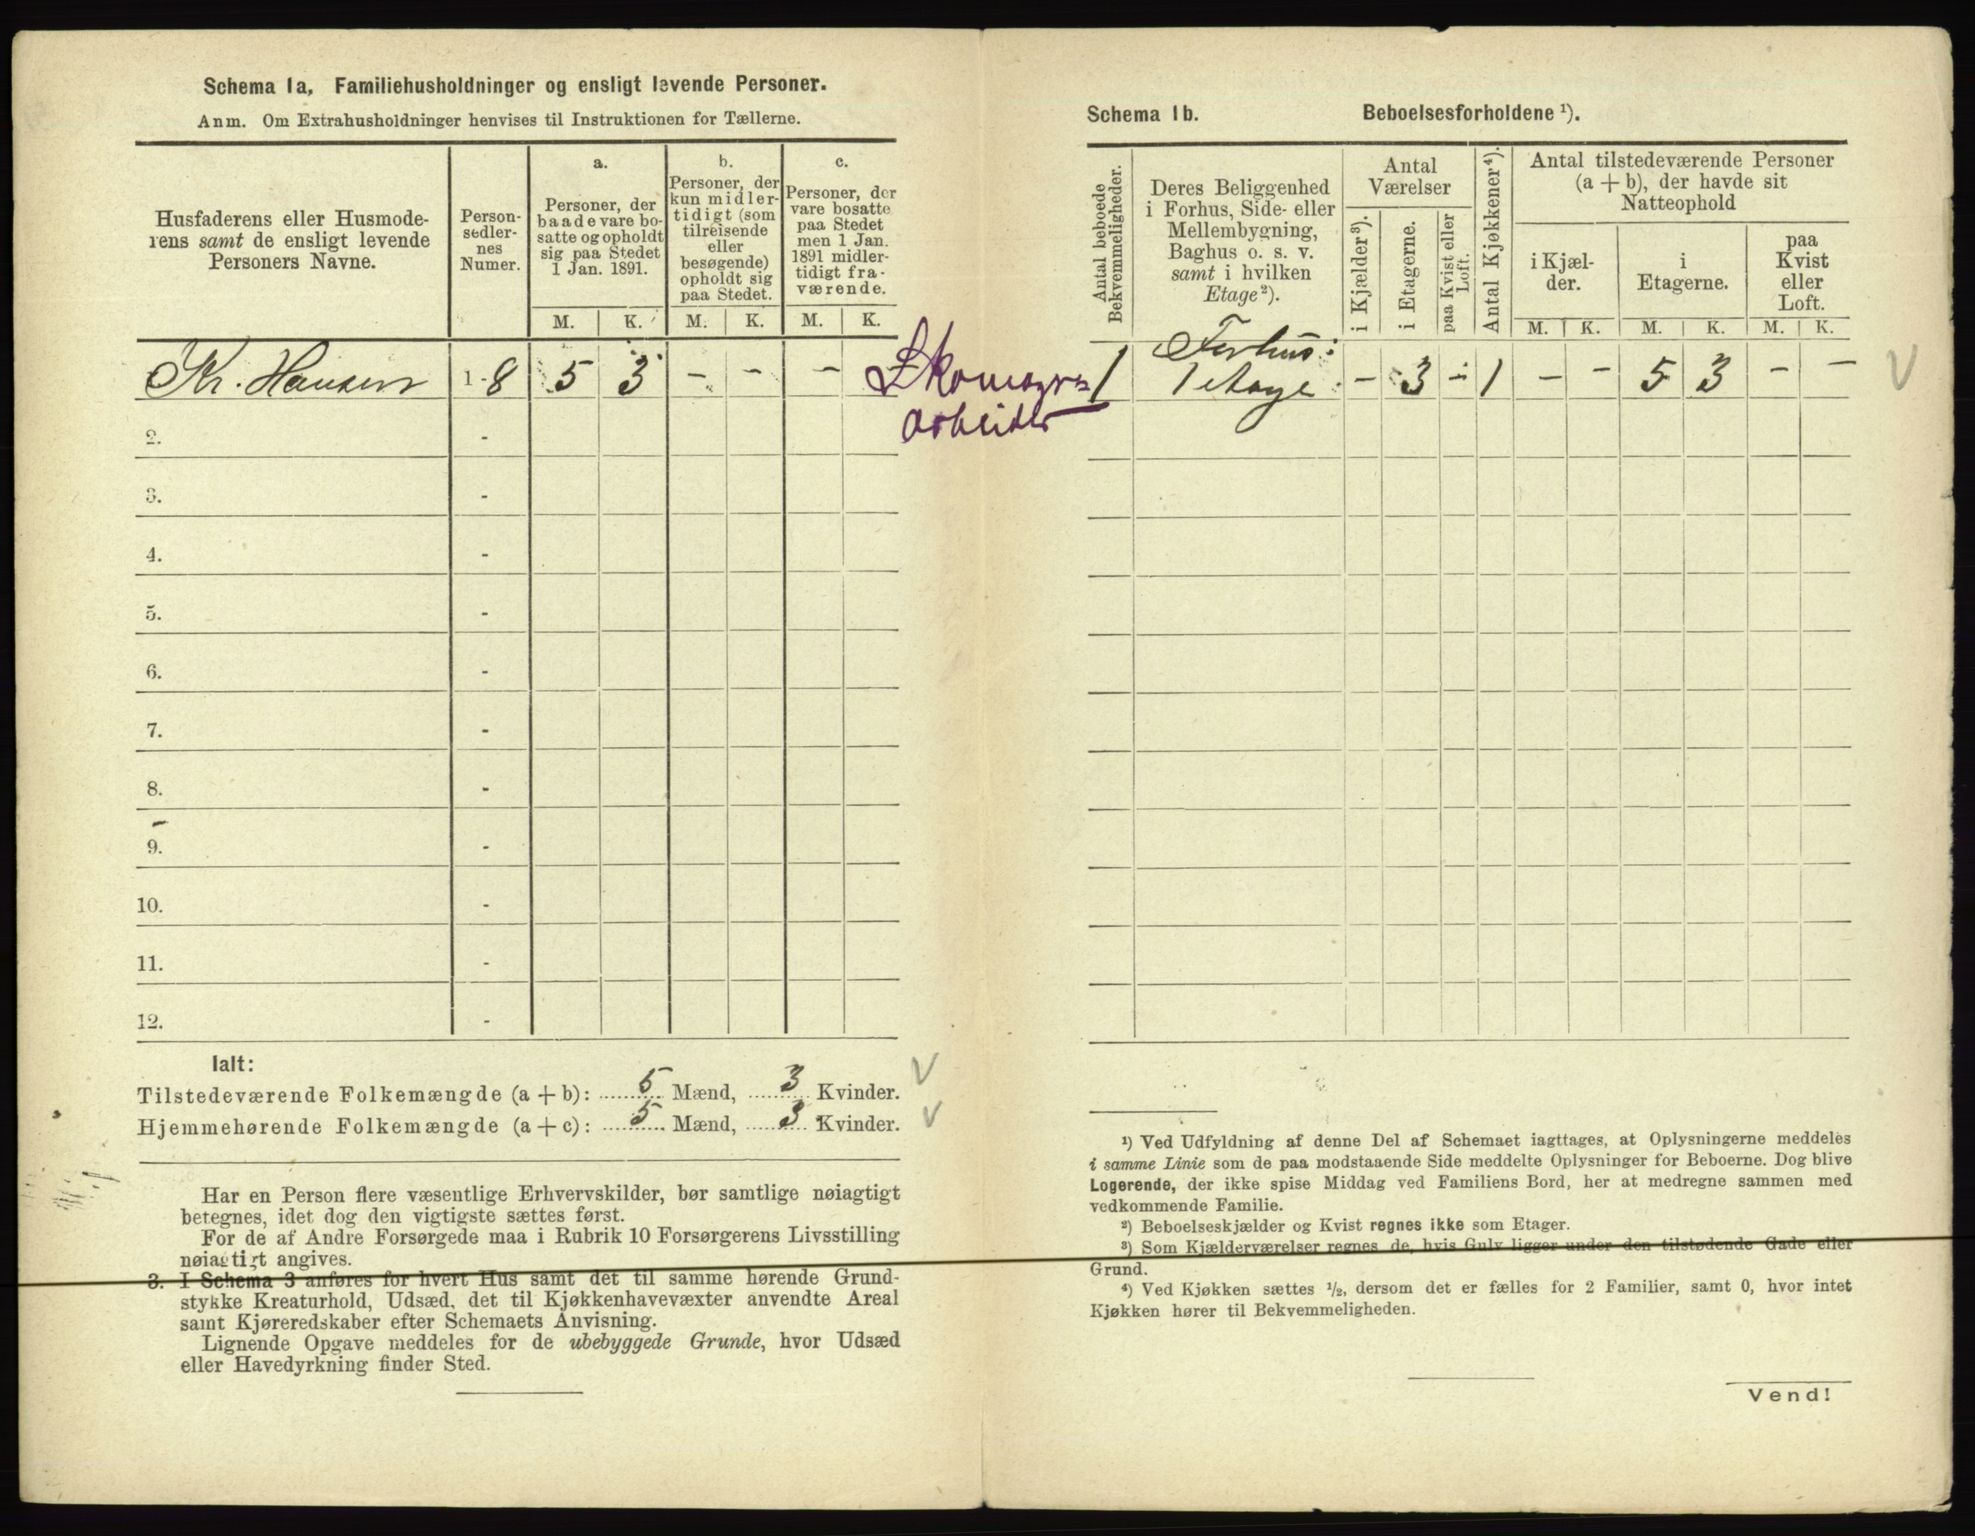 Schema 1a, Familiehusholdninger og ensligt levende Personer.
Anm. Om Extrahusholdninger henvises til Instruktionen for Tællerne.
Husfaderens eller Husmode-
rens samt de ensligt levende
Personers Navne.
Person-
sedler-
nes
Numer.
a.
Personer, der
baade vare bo-
satte og opholdt
sig paa Stedet
1 Jan. 1891.
b.
Personer, der
kun midler-
tidigt (som
tilreisende
eller
besøgende)
opholdt sig
paa Stedet.
c.
Personer, der
vare bosatte
paa Stedet
men 1 Jan.
1891 midler-
tidigt fra-
værende.
M. K. M. K. M. K.
Kr. Hansen 1 - 8 5 3 - - -
Skomager=
arbeider
2. -
3. -
4. -
5. -
6. -
7. -
8. -
9. -
10. -
11. -
12. -
Ialt:
Tilstedeværende Folkemængde (a + b): 5 Mænd, 3 Kvinder.
Hjemmehørende Folkemængde (a + c): 5 Mænd, 3 Kvinder.
Har en Person flere væsentlige Erhvervskilder, bør samtlige nøiagtigt
betegnes, idet dog den vigtigste sættes først.
For de af Andre Forsørgede maa i Rubrik 10 Forsørgerens Livsstilling
nøiagtigt angives.
3. I Schema 3 anføres for hvert Hus samt det til samme hørende Grund-
stykke Kreaturhold, Udsæd, det til Kjøkkenhavevæxter anvendte Areal
samt Kjøreredskaber efter Schemaets Anvisning.
Lignende Opgave meddeles for de ubebyggede Grunde, hvor Udsæd
eller Havedyrkning finder Sted.
Schema 1b. Beboelsesforholdene ¹).
Antal beboede
Bekvemmeligheder.
Deres Beliggenhed
i Forhus, Side- eller
Mellembygning,
Baghus o. s. v.
samt i hvilken
Etage²).
Antal
Værelser
i Kjælder³).
i Etagerne.
paa Kvist eller
Loft.
Antal Kjøkkener⁴).
Antal tilstedeværende Personer
(a + b), der havde sit
Natteophold
i Kjæl-
der.
i
Etagerne.
paa
Kvist
eller
Loft.
M. K. M. K. M. K.
Forhus:
1 1 etage - 3 - 1 - - 5 3 - -
¹) Ved Udfyldning af denne Del af Schemaet iagttages, at Oplysningerne meddeles
i samme Linie som de paa modstaaende Side meddelte Oplysninger for Beboerne. Dog blive
Logerende, der ikke spise Middag ved Familiens Bord, her at medregne sammen med
vedkommende Familie.
²) Beboelseskjælder og Kvist regnes ikke som Etager.
³) Som Kjælderværelser regnes de, hvis Gulv ligger under den tilstødende Gade eller
Grund.
⁴) Ved Kjøkken sættes ½, dersom det er fælles for 2 Familier, samt 0, hvor intet
Kjøkken hører til Bekvemmeligheden.
Vend!